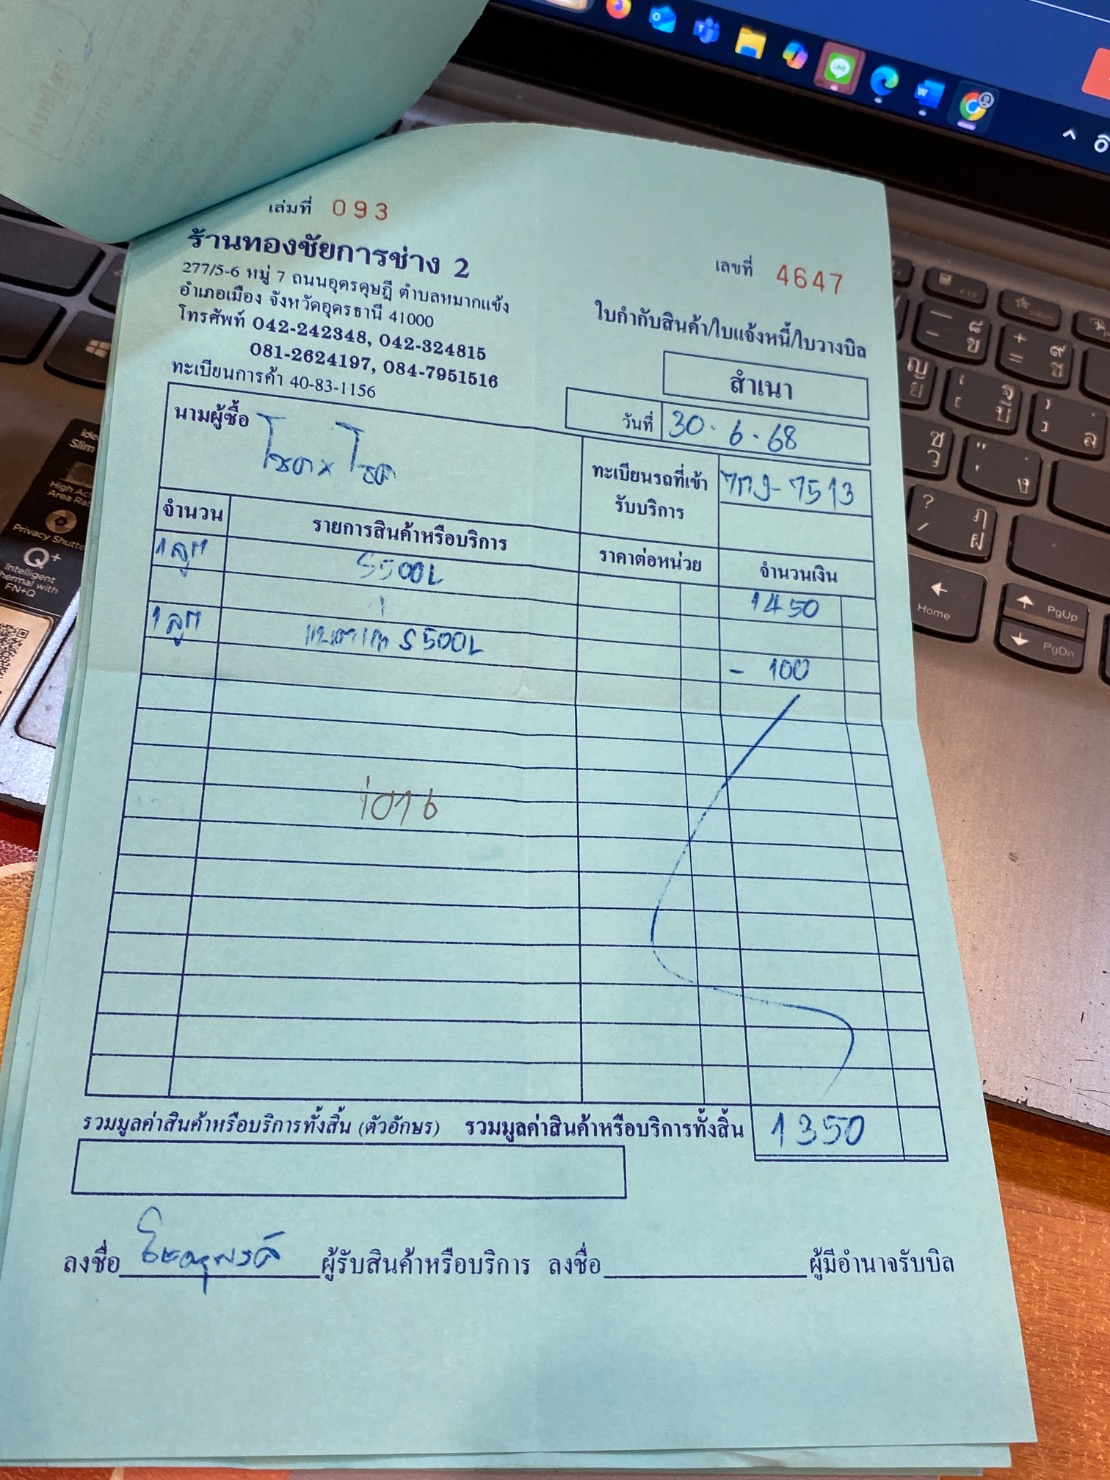 เล่มที่ 093
ร้านทองชัยการช่าง 2
277/5-6 หมู่ 7 ถนนอุดรดุษฎี ตำบลหมากแข้ง
อำเภอเมือง จังหวัดอุดรธานี 41000
โทรศัพท์ 042-242348, 042-324815
081-2624197, 084-7951516
ทะเบียนการค้า 40-83-1156
เลขที่ 4647
ใบกำกับสินค้า/ใบแจ้งหนี้/ใบวางบิล
สำเนา
วันที่ 30-6-68
นามผู้ซื้อ
ทะเบียนรถที่เข้ารับบริการ 7513
จำนวน รายการสินค้าหรือบริการ ราคาต่อหน่วย จำนวนเงิน
1 ลูก S500L 1450
1 ลูก S500L - 100
รวมมูลค่าสินค้าหรือบริการทั้งสิ้น (ตัวอักษร) รวมมูลค่าสินค้าหรือบริการทั้งสิ้น 1350
ลงชื่อ ผู้รับสินค้าหรือบริการ ลงชื่อ ผู้มีอำนาจรับบิล
Home
PgUp
PgDn